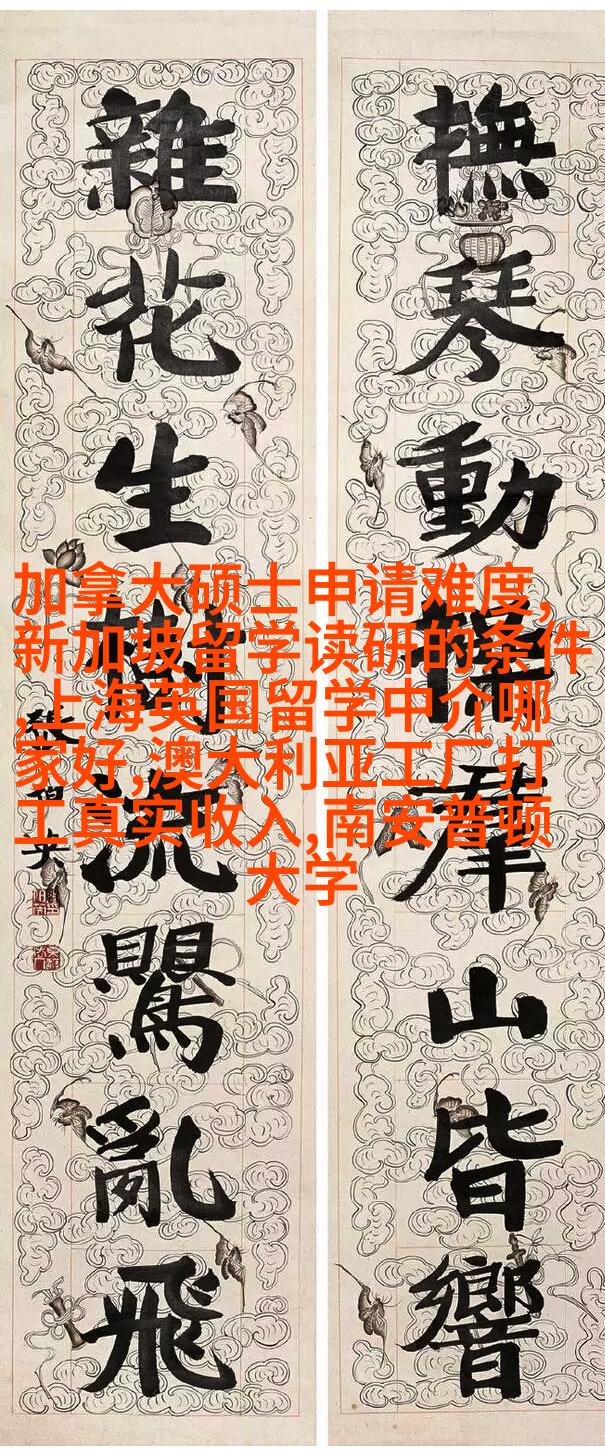 撫琴動操羣山皆響
雜花生樹流鸎亂飛
張伯英
加拿大硕士申请难度,
新加坡留学读研的条件
,上海英国留学中介哪
家好,澳大利亚工厂打
工真实收入,南安普顿
大学